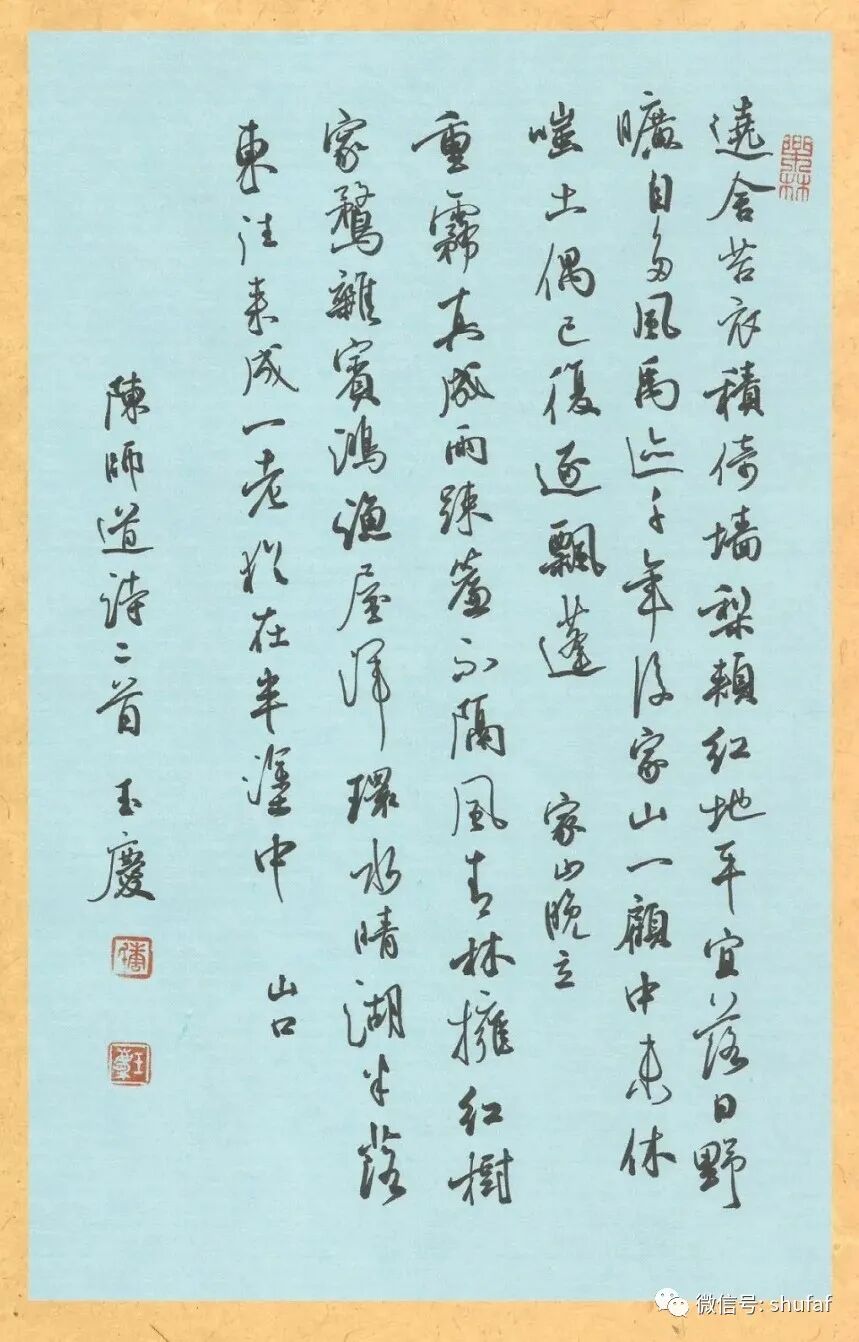 遶舍苔衣積倚墻梨頰紅地平宜落日野
曠自多風禹迹千年後家山一顧中未休
嗤土偶已復逐飄蓬
家山晚立
重霧真成雨疎簾不隔風青林擁紅樹
家鶩雜賓鴻漁屋渾環水晴湖半落
東往来成一老於在半塗中
山口
陳師道詩二首 玉慶
微信号: shufaf